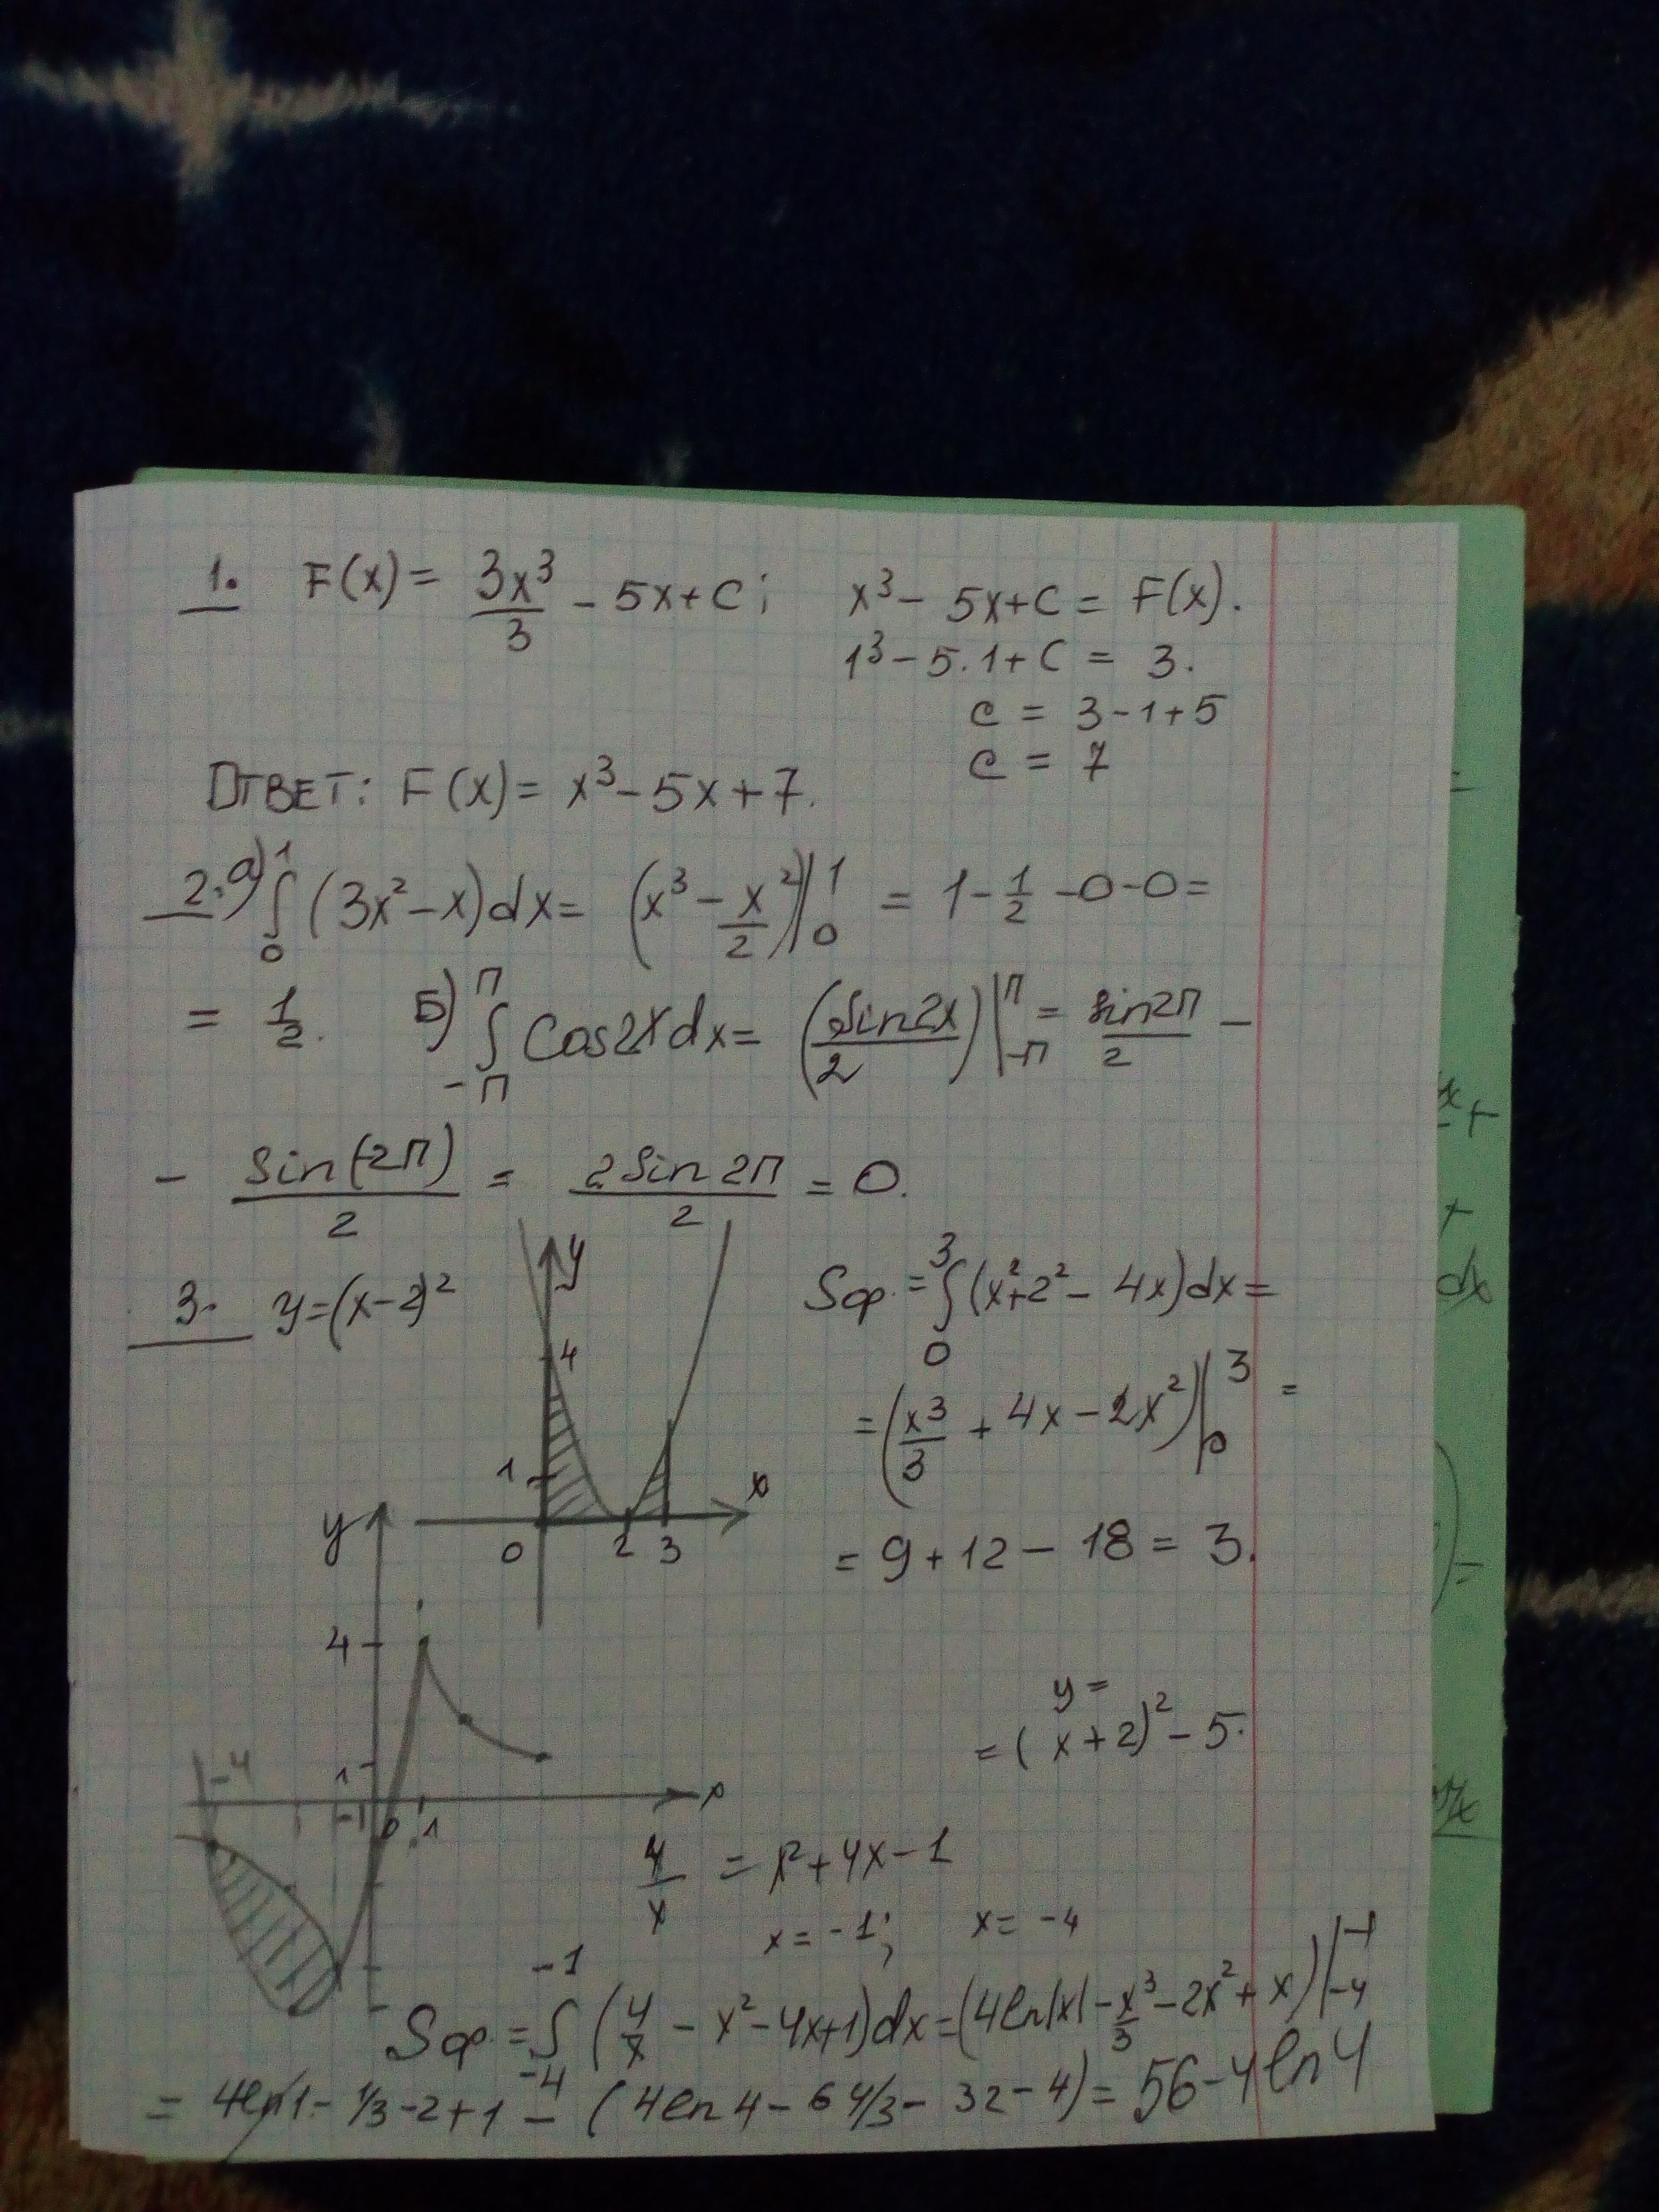 1. F(x) = 3x³/3 - 5x + C; x³ - 5x + C = F(x).
1³ - 5·1 + C = 3.
C = 3 - 1 + 5
C = 7
ОТВЕТ: F(x) = x³ - 5x + 7.
2. а) ∫₀¹ (3x² - x)dx = (x³ - x²/2)|₀¹ = 1 - 1/2 - 0 - 0 =
= 1/2. Б) ∫₋π^π Cos2xdx = (Sin2x/2)|₋π^π = sin2π/2 -
- Sin(-2π)/2 = 2Sin2π/2 = 0.
3. y = (x-2)²
y
4
1
0 2 3 x
Sф. = ∫₀³ (x² + 2² - 4x)dx =
= (x³/3 + 4x - 2x²)|₀³ =
= 9 + 12 - 18 = 3.
y
4
1
-4 -1 0 1 x
y =
= (x+2)² - 5.
4/x = x² + 4x - 1
x = -1; x = -4
Sф. = ∫₋₄⁻¹ (4/x - x² - 4x + 1)dx = (4ln|x| - x³/3 - 2x² + x)|₋₄⁻¹
= 4ln1 - 1/3 - 2 + 1 - (4ln4 - 64/3 - 32 - 4) = 56 - 4ln4